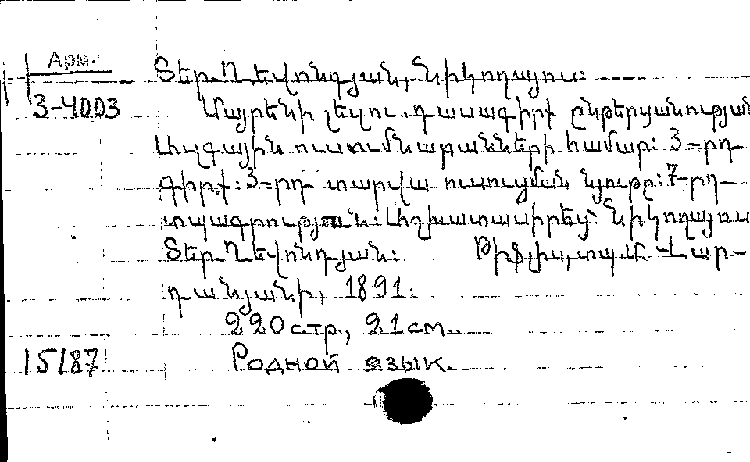 Арм.
Տեր-Ղևոնդյան, Նիկողայոս:
3-4003 Մայրենի լեզու. դասագիրք ընթերցանության
ազգային ուսումնարանների համար: 3-րդ
գիրք: 3-րդ տարվա ուսուցման նյութը: 7-րդ
տպագրություն: Աշխատասիրեց՝ Նիկողայոս
Տեր-Ղևոնդյան: Թիֆլիս, տպ. Մ. Վար-
դանյանի, 1891.
220 стр., 21 см.
15187 Родной язык.